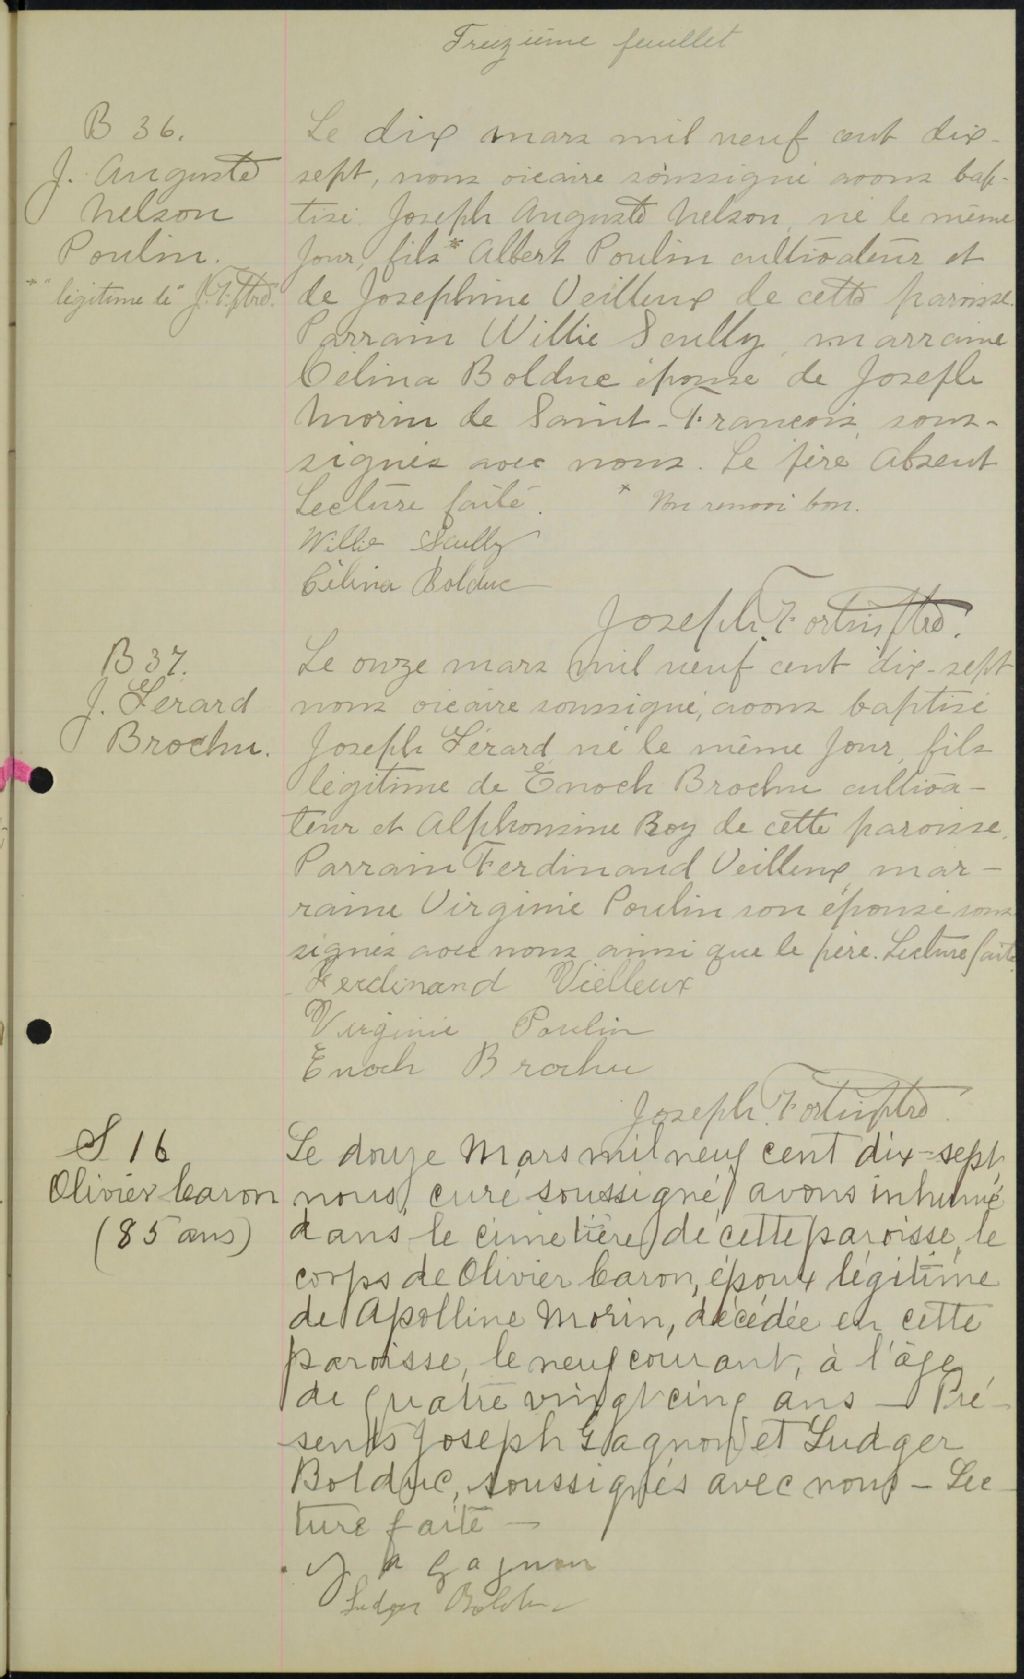 Treizième feuillet
B 36.
J. Auguste
Nelson
Poulin.
*" légitime de" J. F. Ptre.
Le dix mars mil neuf cent dix-
sept, nous vicaire soussigné avons bap-
tisé Joseph Auguste Nelson, né le même
jour, fils * Albert Poulin cultivateur et
de Josephine Veilleux de cette paroisse.
Parrain Willie Scully, marraine
Célina Bolduc épouse de Joseph
Morin de Saint-François, sous-
signés avec nous. Le père absent
Lecture faite. * Un renvoi bon.
Willie Scully
Célina Bolduc
Joseph. Fortin Ptre.
B 37.
J. Gérard
Brochu.
Le onze mars mil neuf cent dix-sept
nous vicaire soussigné, avons baptisé
Joseph Gérard, né le même jour, fils
légitime de Enoch Brochu cultiva-
teur et Alphonsine Roy de cette paroisse.
Parrain Ferdinand Veilleux, mar-
raine Virginie Poulin son épouse sous-
signés avec nous ainsi que le père. Lecture faite.
Ferdinand Vielleux
Virginie Poulin
Enoch Brochu
Joseph. Fortin Ptre.
S 16
Olivier Caron
(85 ans)
Le douze Mars mil neuf cent dix-sept,
nous, curé soussigné, avons inhumé
dans le cimetière de cette paroisse, le
corps de Olivier Caron, époux légitime
de Apolline Morin, décédée en cette
paroisse, le neuf courant, à l'âge
de quatre vingt cinq ans — Pré-
sents Joseph Gagnon et Ludger
Bolduc, soussignés avec nous — Lec-
ture faite —
J A Gagnon
Ludger Bolduc